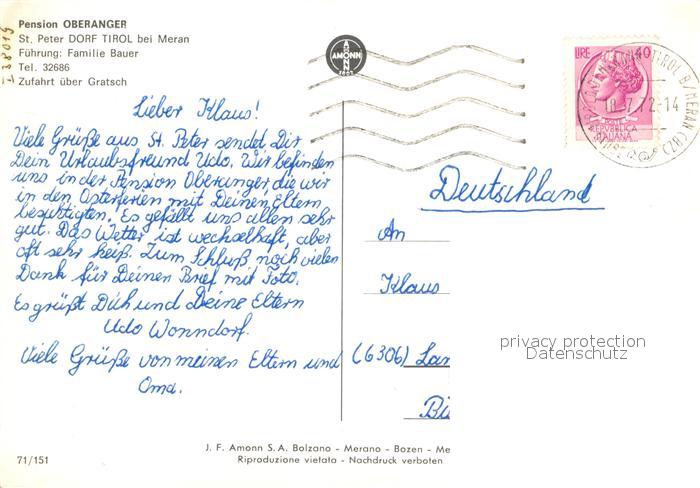 Pension OBERANGER
St. Peter DORF TIROL bei Meran
Führung: Familie Bauer
Tel. 32686
Zufahrt über Gratsch
Lieber Klaus!
Viele Grüße aus St. Peter sendet Dir
Dein Urlaubsfreund Udo. Wir befinden
uns in der Pension Oberanger, die wir
in den Osterferien mit Deinen Eltern
besichtigten. Es gefällt uns allen sehr
gut. Das Wetter ist wechselhaft, aber
oft sehr heiß. Zum Schluß noch vielen
Dank für Deinen Brief mit Foto.
Es grüßt Dich und Deine Eltern
Udo Wonndorf.
Viele Grüße von meinen Eltern und
Oma.
71/151
AMONN
LIRE 40
REPVBBLICA
ITALIANA
18.7.72-14
Deutschland
An
Klaus
(6306) Lan
privacy protection
Datenschutz
J. F. Amonn S.A. Bolzano - Merano - Bozen - Me
Riproduzione vietata - Nachdruck verboten